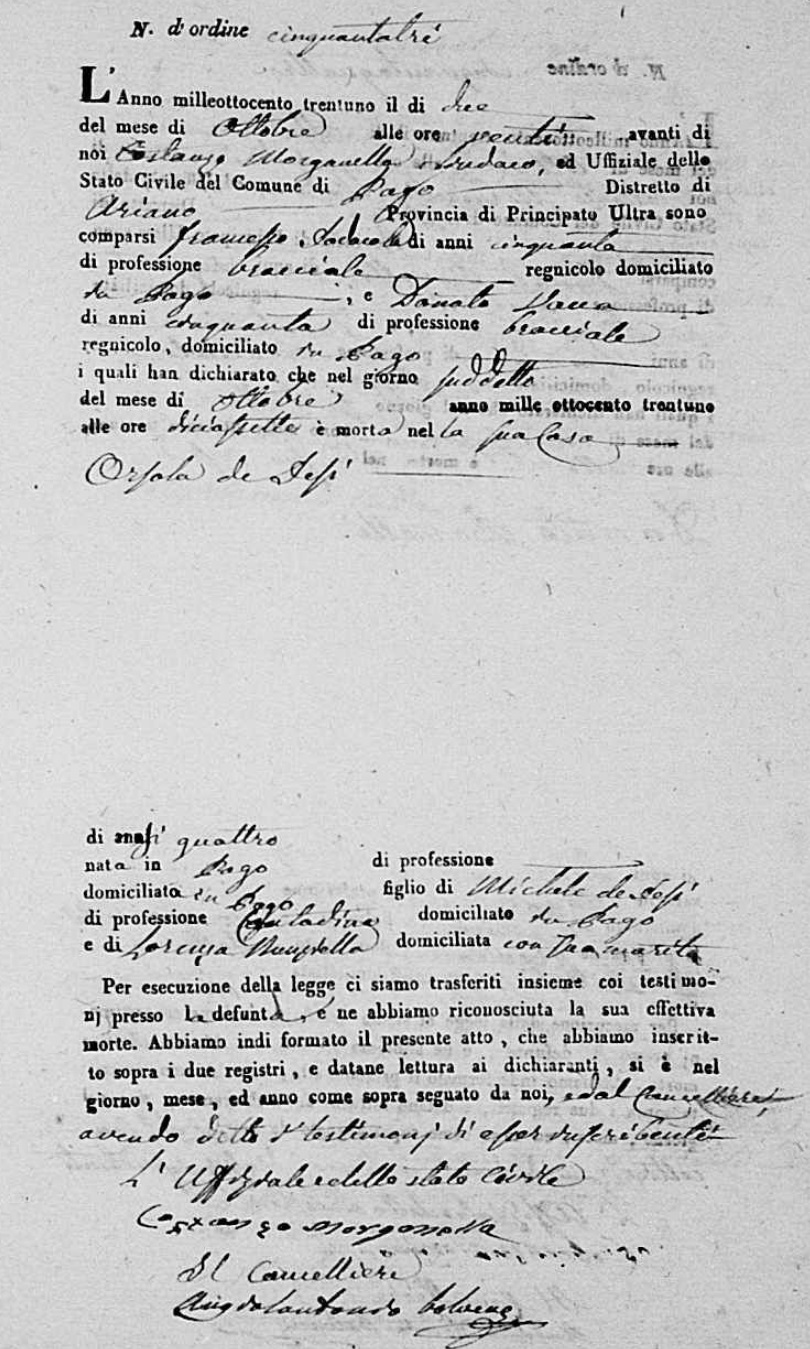 N. d'ordine cinquantatrè
L'Anno milleottocento trentuno il di due
del mese di Ottobre alle ore venti avanti di
noi Costanzo Morganella Sindaco, ed Uffiziale dello
Stato Civile del Comune di Pago Distretto di
Ariano Provincia di Principato Ultra sono
comparsi Francesco di anni cinquanta
di professione bracciale regnicolo domiciliato
in Pago, e Donato Vacca
di anni cinquanta di professione bracciale
regnicolo, domiciliato in Pago
i quali han dichiarato che nel giorno suddetto
del mese di ottobre anno mille ottocento trentuno
alle ore diciassette è morta nella sua Casa
Orsola de
di quattro
nata in Pago di professione
domiciliata in Pago figlio di Michele de
di professione domiciliato in Pago
e di Lorenza domiciliata con suo marito
Per esecuzione della legge, ci siamo trasferiti insieme coi testimo-
nj presso la defunta, e ne abbiamo riconosciuta la sua effettiva
morte. Abbiamo indi formato il presente atto, che abbiamo inserit-
to sopra i due registri, e datane lettura ai dichiaranti, si è nel
giorno, mese, ed anno come sopra segnato da noi, e dal Cancelliere,
avendo detto i testimonj di esser
L'Uffiziale dello stato Civile
Costanzo Morganella
Il Cancelliere